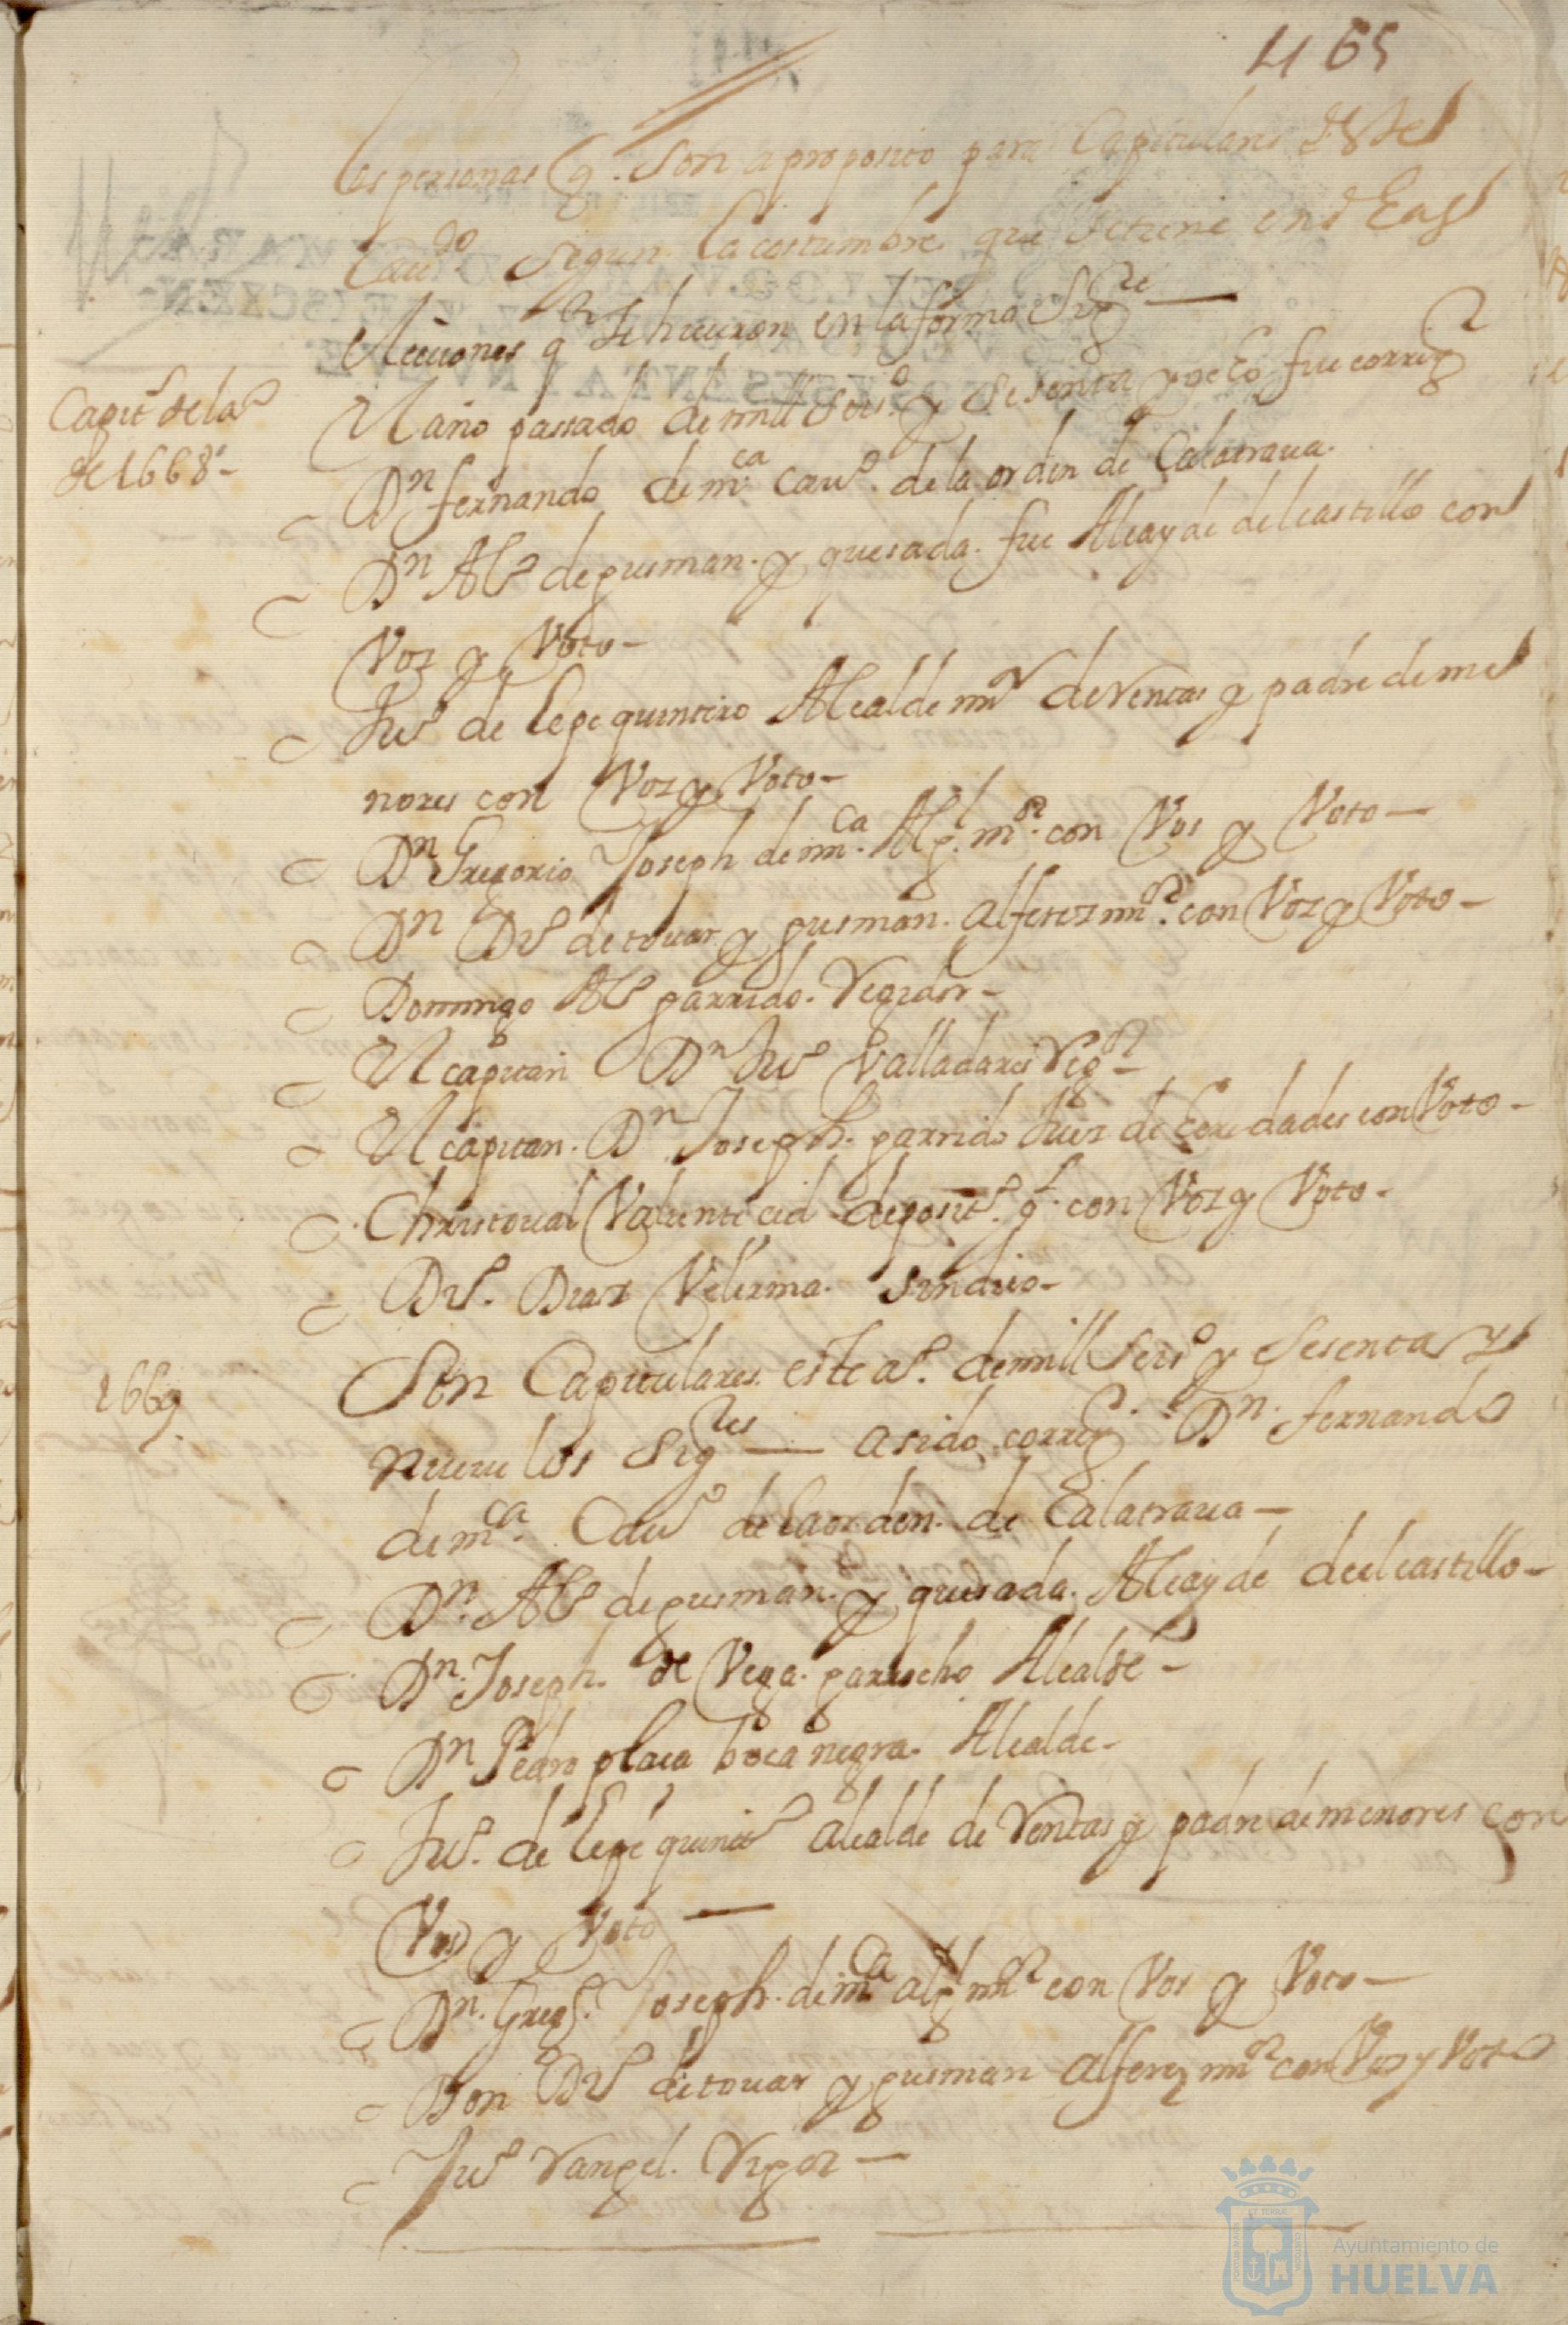 465
las personas q. son aproposito para Capitulares deste
Caudo. segun la costumbre que se tiene en las
elecciones q se hicieron en la forma sigte —
Capits de la
de 1668 -
El año passado de mill seis.o y sesenta y ocho fue correg
Dn fernando de m.ca cauo. de la orden de Calatraua.
Dn Alo de gusman. y quesada. fue Alcayde del castillo con
Voz y Voto -
Juo de lepe quintero Alcalde mr de ventas y padre de me
nores con Voz y Voto -
Dn Gregorio Joseph de m.ca Alg.l mor. con Vos y Voto —
Dn Do de touar y gusman. alferez mor. con Voz y Voto -
Domingo Alo garrido. Regidor -
El capitan Dn Juo Valladares Regor -
El capitan. Dn Joseph. garrido Juez de heredades con Voto -
Christoual Valiente cid deposito. g.l con Voz y Voto -
Do. Diaz Velerma. sindico -
1669.
Son Capitulares este ao. de mill seiso y sesenta y
nueue los sigtes — a sido correg. Dn. fernando
de m.ca Cauo de la orden. de Calatraua —
Dn. Alo de gusman. y quesada. Alcayde del castillo -
Dn. Joseph. de Vega. garrocho Alcalde -
Dn Pedro plaça boca negra. Alcalde -
Juo. de lepe quinto alcalde de Ventas y padre de menores con
Vos y Voto —
Dn. Grego. Joseph. de m.ca algl mor con Vos y Voto —
Don Do de touar y gusman alferez mor con Voz y Voto
Juo Rangel. Regor —
Ayuntamiento de
HUELVA